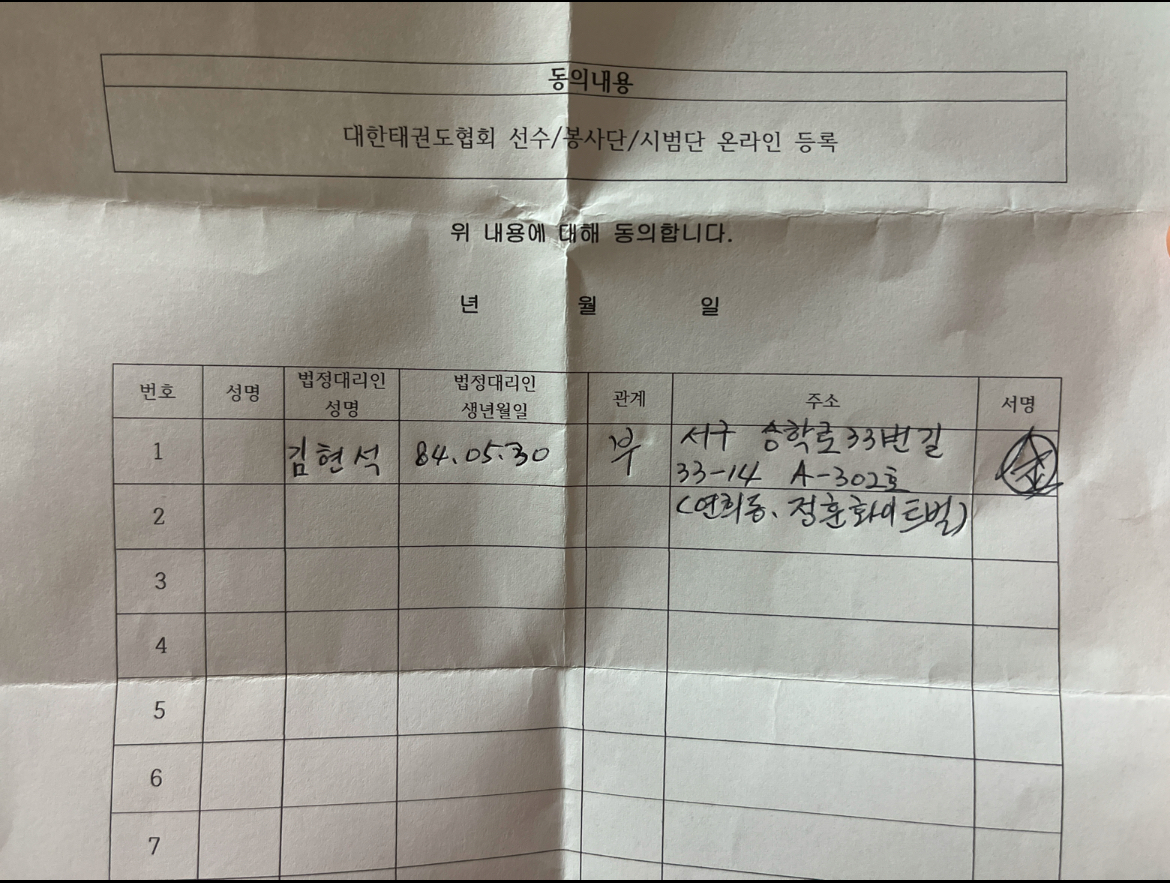 동의내용
대한태권도협회 선수/봉사단/시범단 온라인 등록
위 내용에 대해 동의합니다.
년 월 일
번호 성명 법정대리인 성명 법정대리인 생년월일 관계 주소 서명
1 김현석 84.05.30 부 서구 승학로33번길
33-14 A-302호
2 (연희동, 정훈화이트빌)
3
4
5
6
7